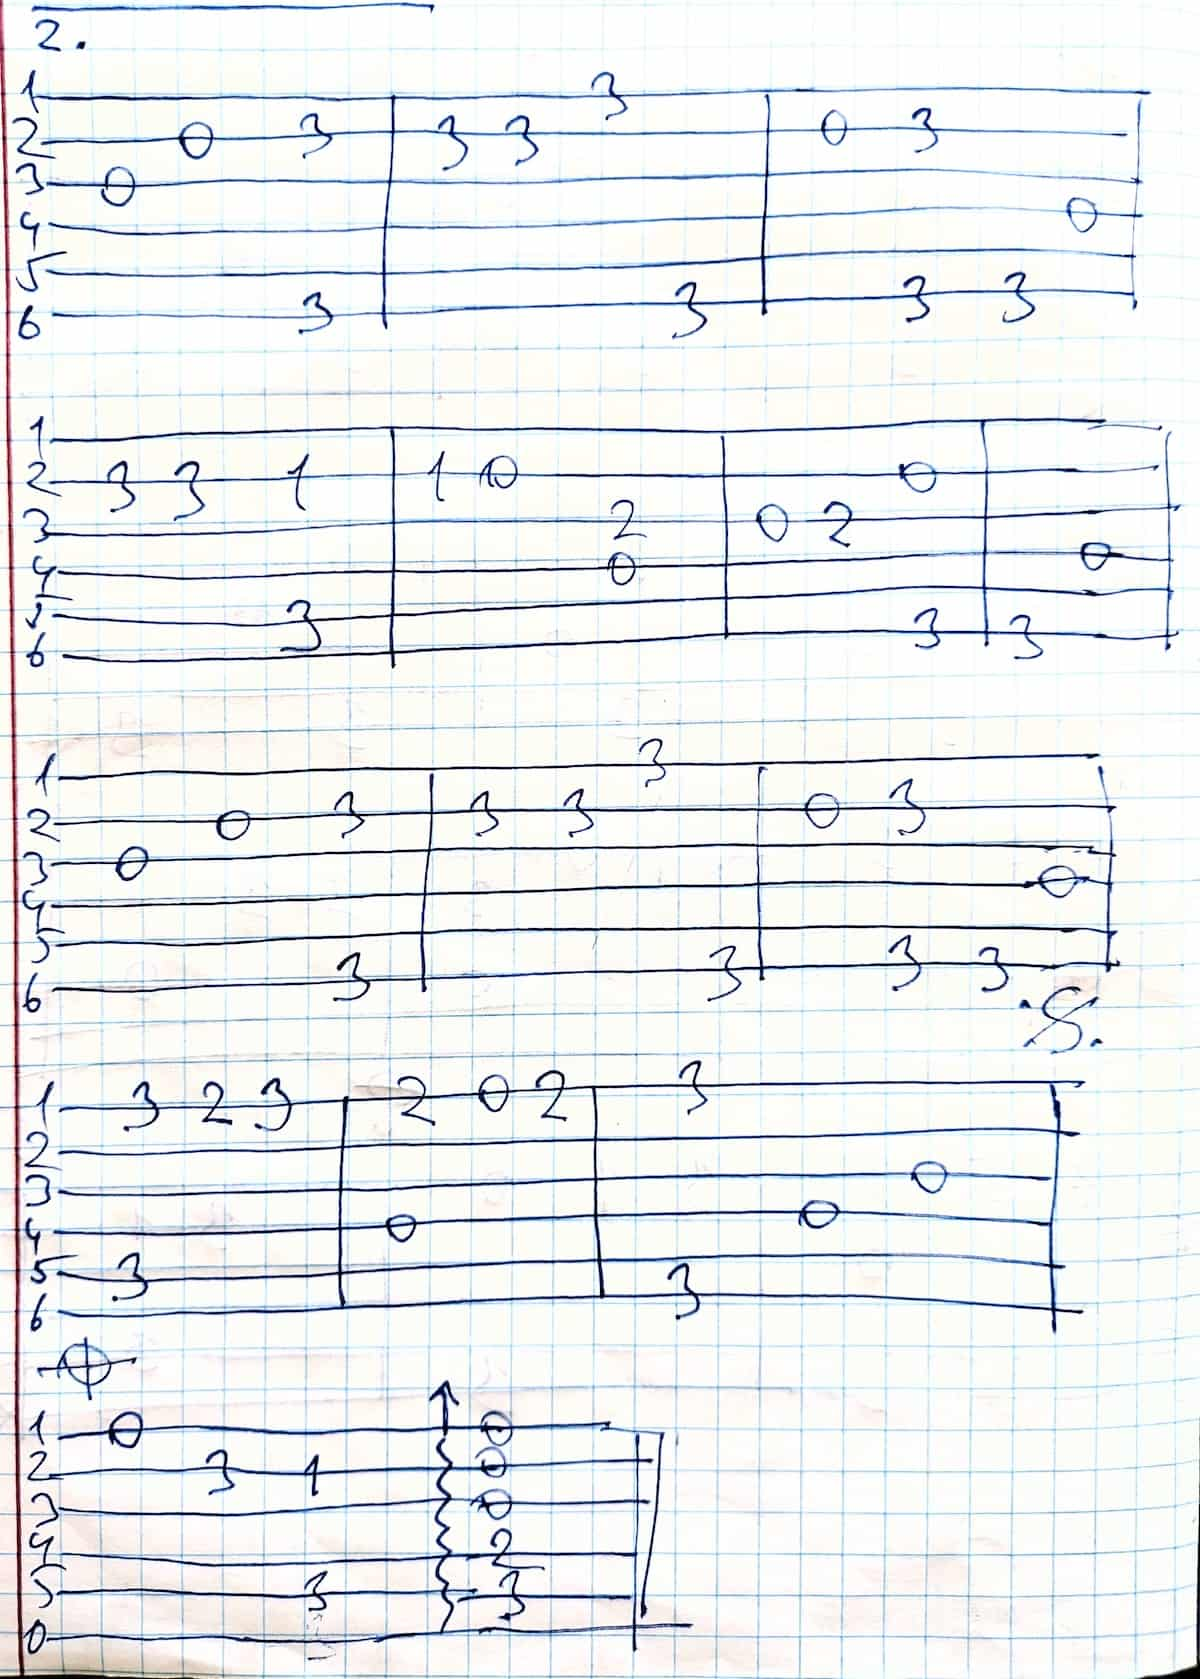 2.
1 3
2 0 3 3 3 0 3
3 0
4 0
5
6 3 3 3 3
1
2 3 3 1 1 0 0
3 2 0 2
4 0 0
5 3
6 3 3
1 3
2 0 3 3 3 0 3
3 0
4 0
5
6 3 3 3 3
.S.
1 3 2 3 2 0 2 3
2
3 0
4 0 0
5 3
6 3
1 0 0
2 3 1 0
3 0
4 2
5 3 3
0